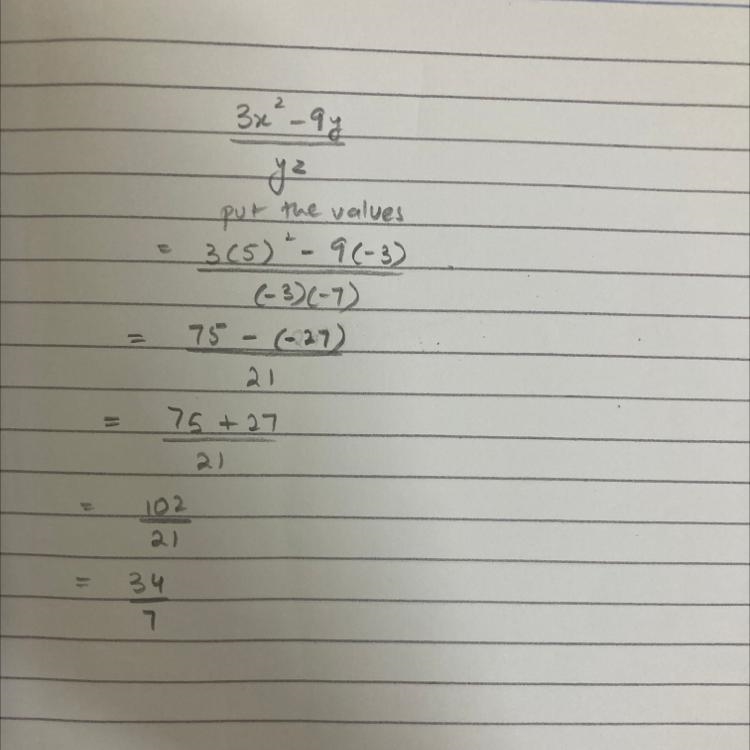 3x² - 9y
yz
put the values
= 3(5)² - 9(-3)
(-3)(-7)
= 75 - (-27)
21
= 75 + 27
21
= 102
21
= 34
7